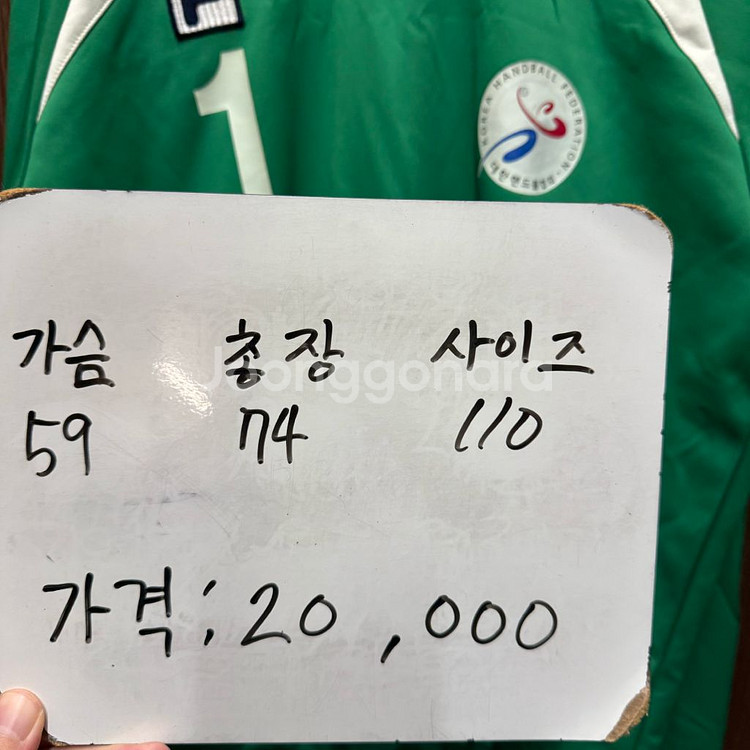 1
KOREA HANDBALL FEDERATION
대한핸드볼협회
가슴 총장 사이즈
59 74 110
Joonggonara
가격: 20,000